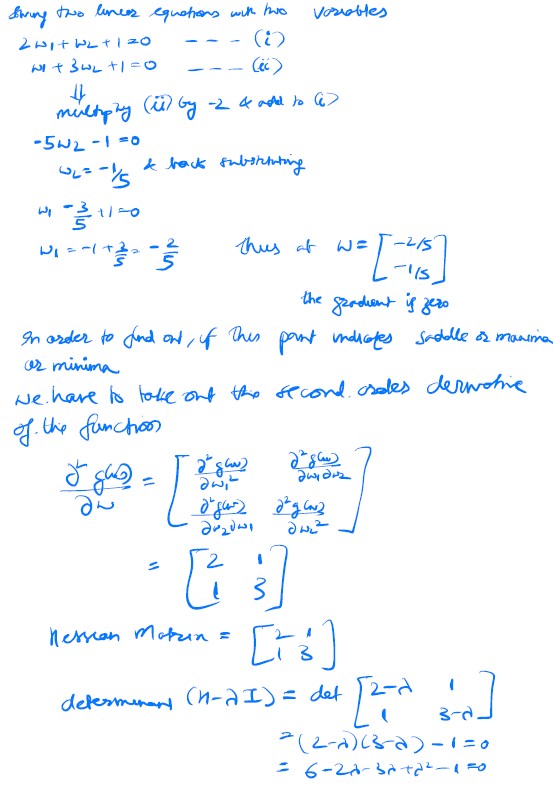 Solving two linear equations with two variables
2w₁ + w₂ + 1 = 0 --- (i)
w₁ + 3w₂ + 1 = 0 --- (ii)
⇓
multiply (ii) by -2 & add to (i)
-5w₂ - 1 = 0
w₂ = -1/5 & back substituting
w₁ - 3/5 + 1 = 0
w₁ = -1 + 3/5 = -2/5 thus at w = [-2/5 -1/5]
the gradient is zero
In order to find out, if this point indicates saddle or maxima
or minima
we have to take out the second order derivative
of the function
∂²g(w)/∂w = [∂²g(w)/∂w₁² ∂²g(w)/∂w₁∂w₂
∂²g(w)/∂w₂∂w₁ ∂²g(w)/∂w₂²]
= [2 1
1 3]
Hessian Matrix = [2 1
1 3]
determinant (H-λI) = det [2-λ 1
1 3-λ]
= (2-λ)(3-λ) - 1 = 0
= 6 - 2λ - 3λ + λ² - 1 = 0